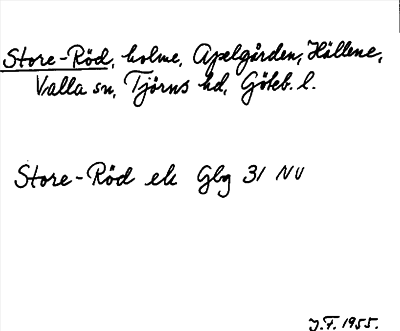 Store-Röd, holme, Apelgården, Hällene,
Valla sn, Tjörns hd, Göteb. l.
Store-Röd ek Gbg 31 NV
J.F. 1955.